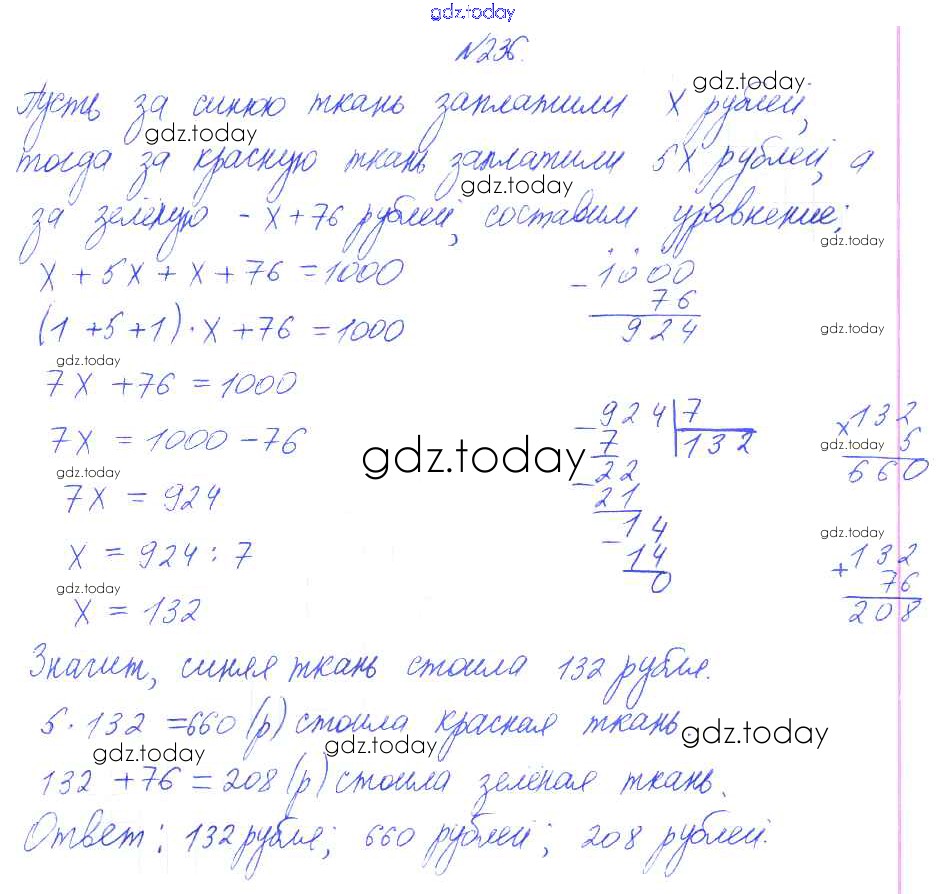 gdz.today
№236.
Пусть за синюю ткань заплатили x рублей,
gdz.today
gdz.today
тогда за красную ткань заплатили 5x рублей, а
gdz.today
за зелёную - x + 76 рублей, составим уравнение:
gdz.today
x + 5x + x + 76 = 1000
(1 + 5 + 1) · x + 76 = 1000
gdz.today
7x + 76 = 1000
7x = 1000 - 76
gdz.today
7x = 924
x = 924 : 7
gdz.today
x = 132
- 1000
76
924
gdz.today
- 924 | 7
7 132
- 22
21
- 14
14
0
gdz.today
x 132
gdz.today
5
660
gdz.today
+ 132
76
208
Значит, синяя ткань стоила 132 рубля.
5 · 132 = 660 (р) стоила красная ткань.
gdz.today
gdz.today
gdz.today
132 + 76 = 208 (р) стоила зелёная ткань.
Ответ: 132 рубля; 660 рублей; 208 рублей.